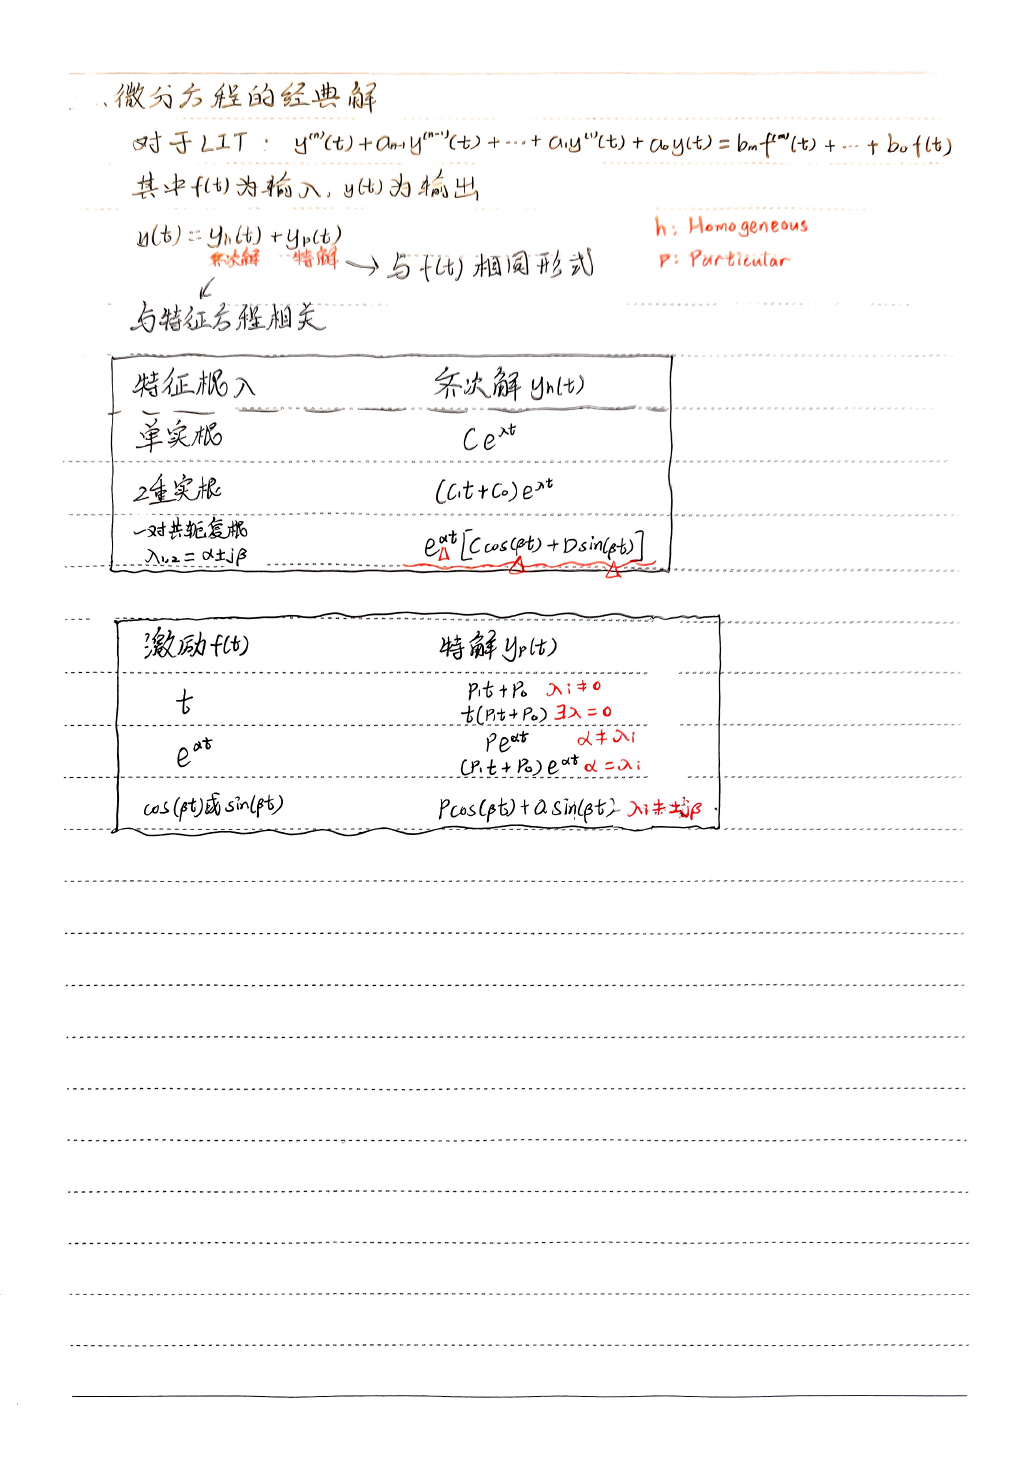 、微分方程的经典解
对于LIT: y⁽ⁿ⁾(t)+aₙ₋₁y⁽ⁿ⁻¹⁾(t)+⋯+a₁y⁽¹⁾(t)+a₀y(t)=bₘf⁽ᵐ⁾(t)+⋯+b₀f(t)
其中f(t)为输入,y(t)为输出
y(t)=yh(t)+yp(t)
h: Homogeneous
齐次解 特解 → 与f(t)相同形式
p: Particular
与特征方程相关
特征根λ 齐次解yh(t)
单实根 Ce^λt
2重实根 (C₁t+C₀)e^λt
一对共轭复根
λ₁,₂=α±jβ e^αt[Ccos(βt)+Dsin(βt)]
激励f(t) 特解yp(t)
t P₁t+P₀ λi≠0
t(P₁t+P₀) ∃λ=0
e^αt Pe^αt α≠λi
(P₁t+P₀)e^αt α=λi
cos(βt)或sin(βt) Pcos(βt)+Qsin(βt) λi≠±jβ